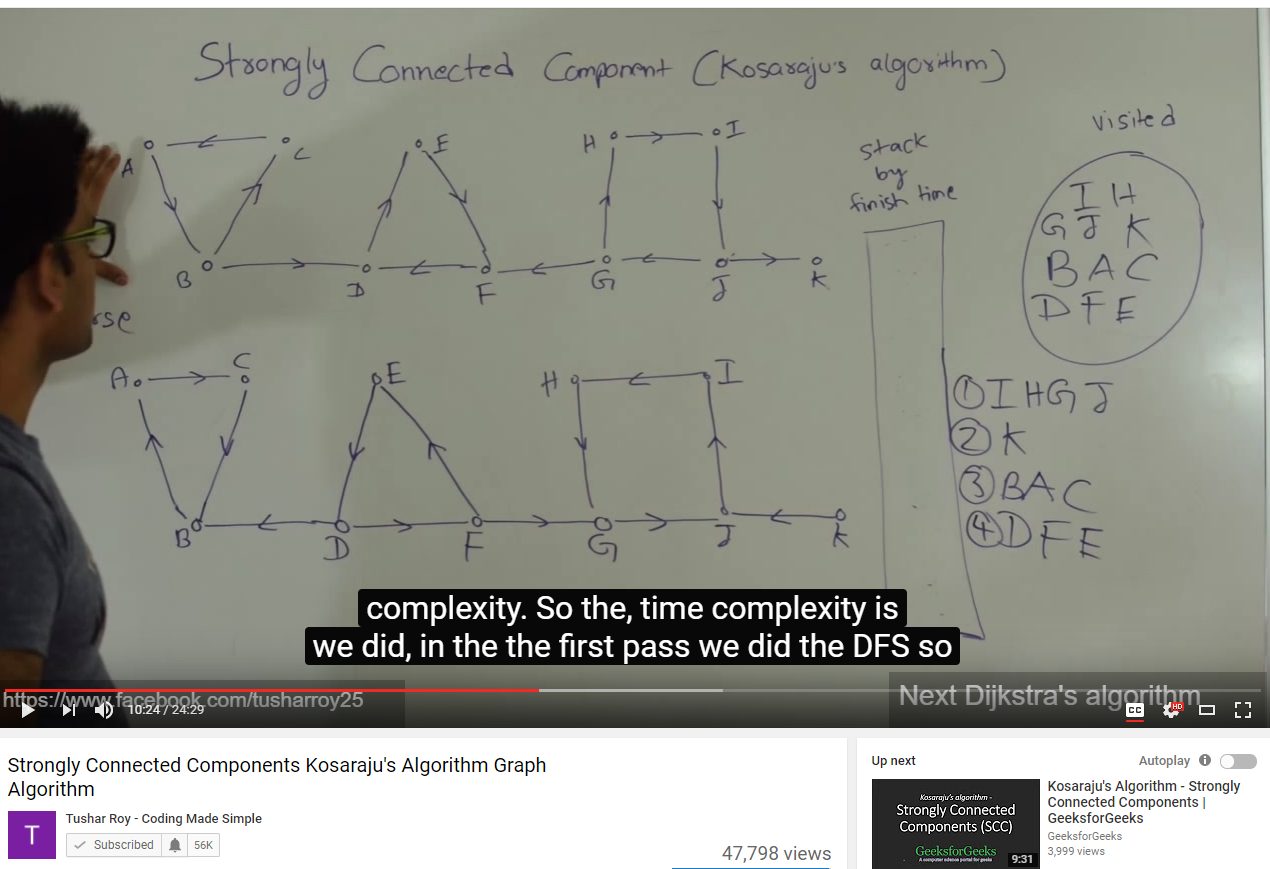 Strongly Connected Component (Kosaraju's algorithm)
visited
stack
by
finish time
H I
E
A C
I H
G J K
B A C
D F E
B D F G J K
rse
A C E H I
① I H G J
② K
③ B A C
④ D F E
B D F G J K
complexity. So the, time complexity is
we did, in the the first pass we did the DFS so
https://www.facebook.com/tusharroy25
Next Dijkstra's algorithm
10:24 / 24:29
CC
HD
Strongly Connected Components Kosaraju's Algorithm Graph
Algorithm
T
Tushar Roy - Coding Made Simple
Subscribed
56K
47,798 views
Up next
Autoplay
Kosaraju's algorithm -
Strongly Connected
Components (SCC)
GeeksforGeeks
A computer science portal for geeks
9:31
Kosaraju's Algorithm - Strongly
Connected Components |
GeeksforGeeks
GeeksforGeeks
3,999 views